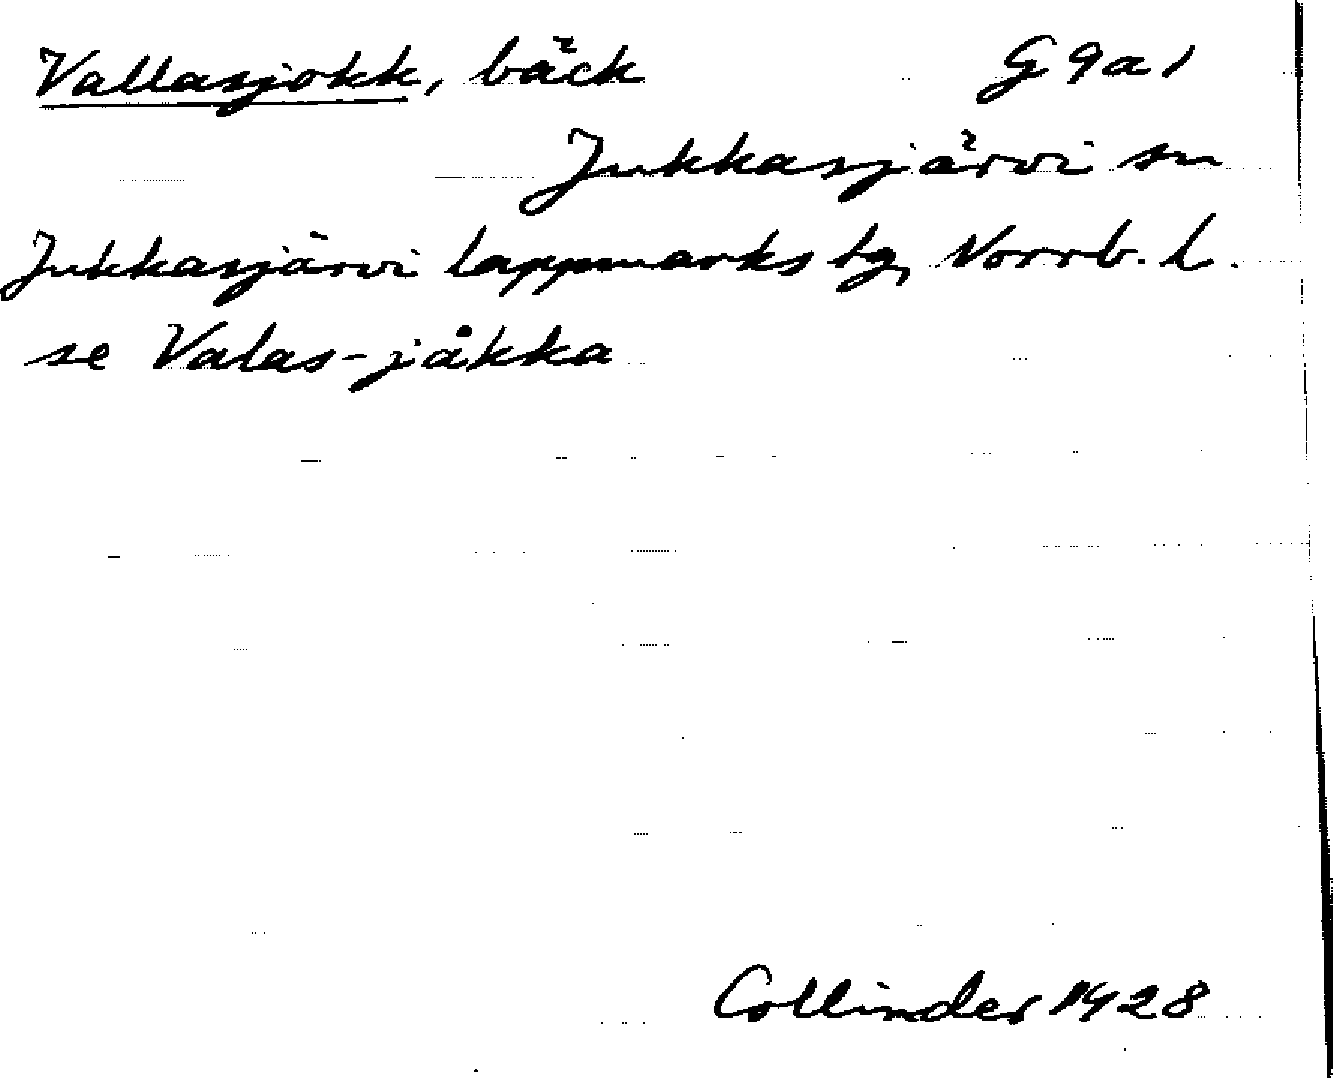 Vallasjokk, bäck G 9 a 1
Jukkasjärvi sn
Jukkasjärvi lappmarks tg, Norrb. l.
se Valas-jåkka
Collinder 1928